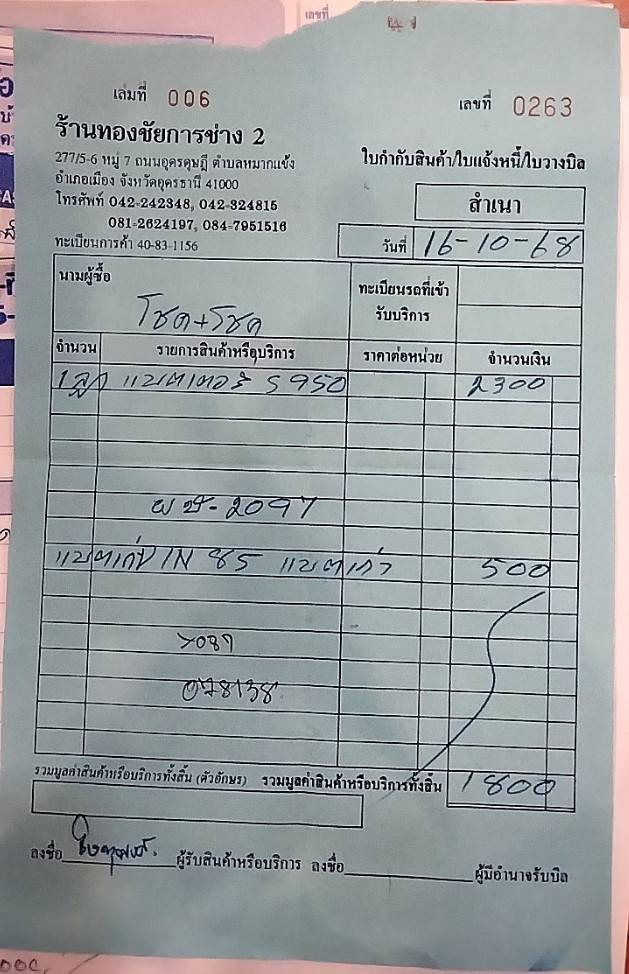 เลขที่
เล่มที่ 006
เลขที่ 0263
ร้านทองชัยการช่าง 2
277/5-6 หมู่ 7 ถนนอุดรดุษฎี ตำบลหมากแข้ง
ใบกำกับสินค้า/ใบแจ้งหนี้/ใบวางบิล
อำเภอเมือง จังหวัดอุดรธานี 41000
โทรศัพท์ 042-242348, 042-324815
สำเนา
081-2624197, 084-7951516
ทะเบียนการค้า 40-83-1156
วันที่ 16-10-68
นามผู้ซื้อ
ทะเบียนรถที่เข้า
รับบริการ
โชค+โชค
จำนวน รายการสินค้าหรือบริการ ราคาต่อหน่วย จำนวนเงิน
1ลูก แบตเตอรี่ S 950 2300
2097
85 แบตเก่า 500
7087
078138
รวมมูลค่าสินค้าหรือบริการทั้งสิ้น (ตัวอักษร) รวมมูลค่าสินค้าหรือบริการทั้งสิ้น 1800
ลงชื่อ ผู้รับสินค้าหรือบริการ ลงชื่อ ผู้มีอำนาจรับบิล